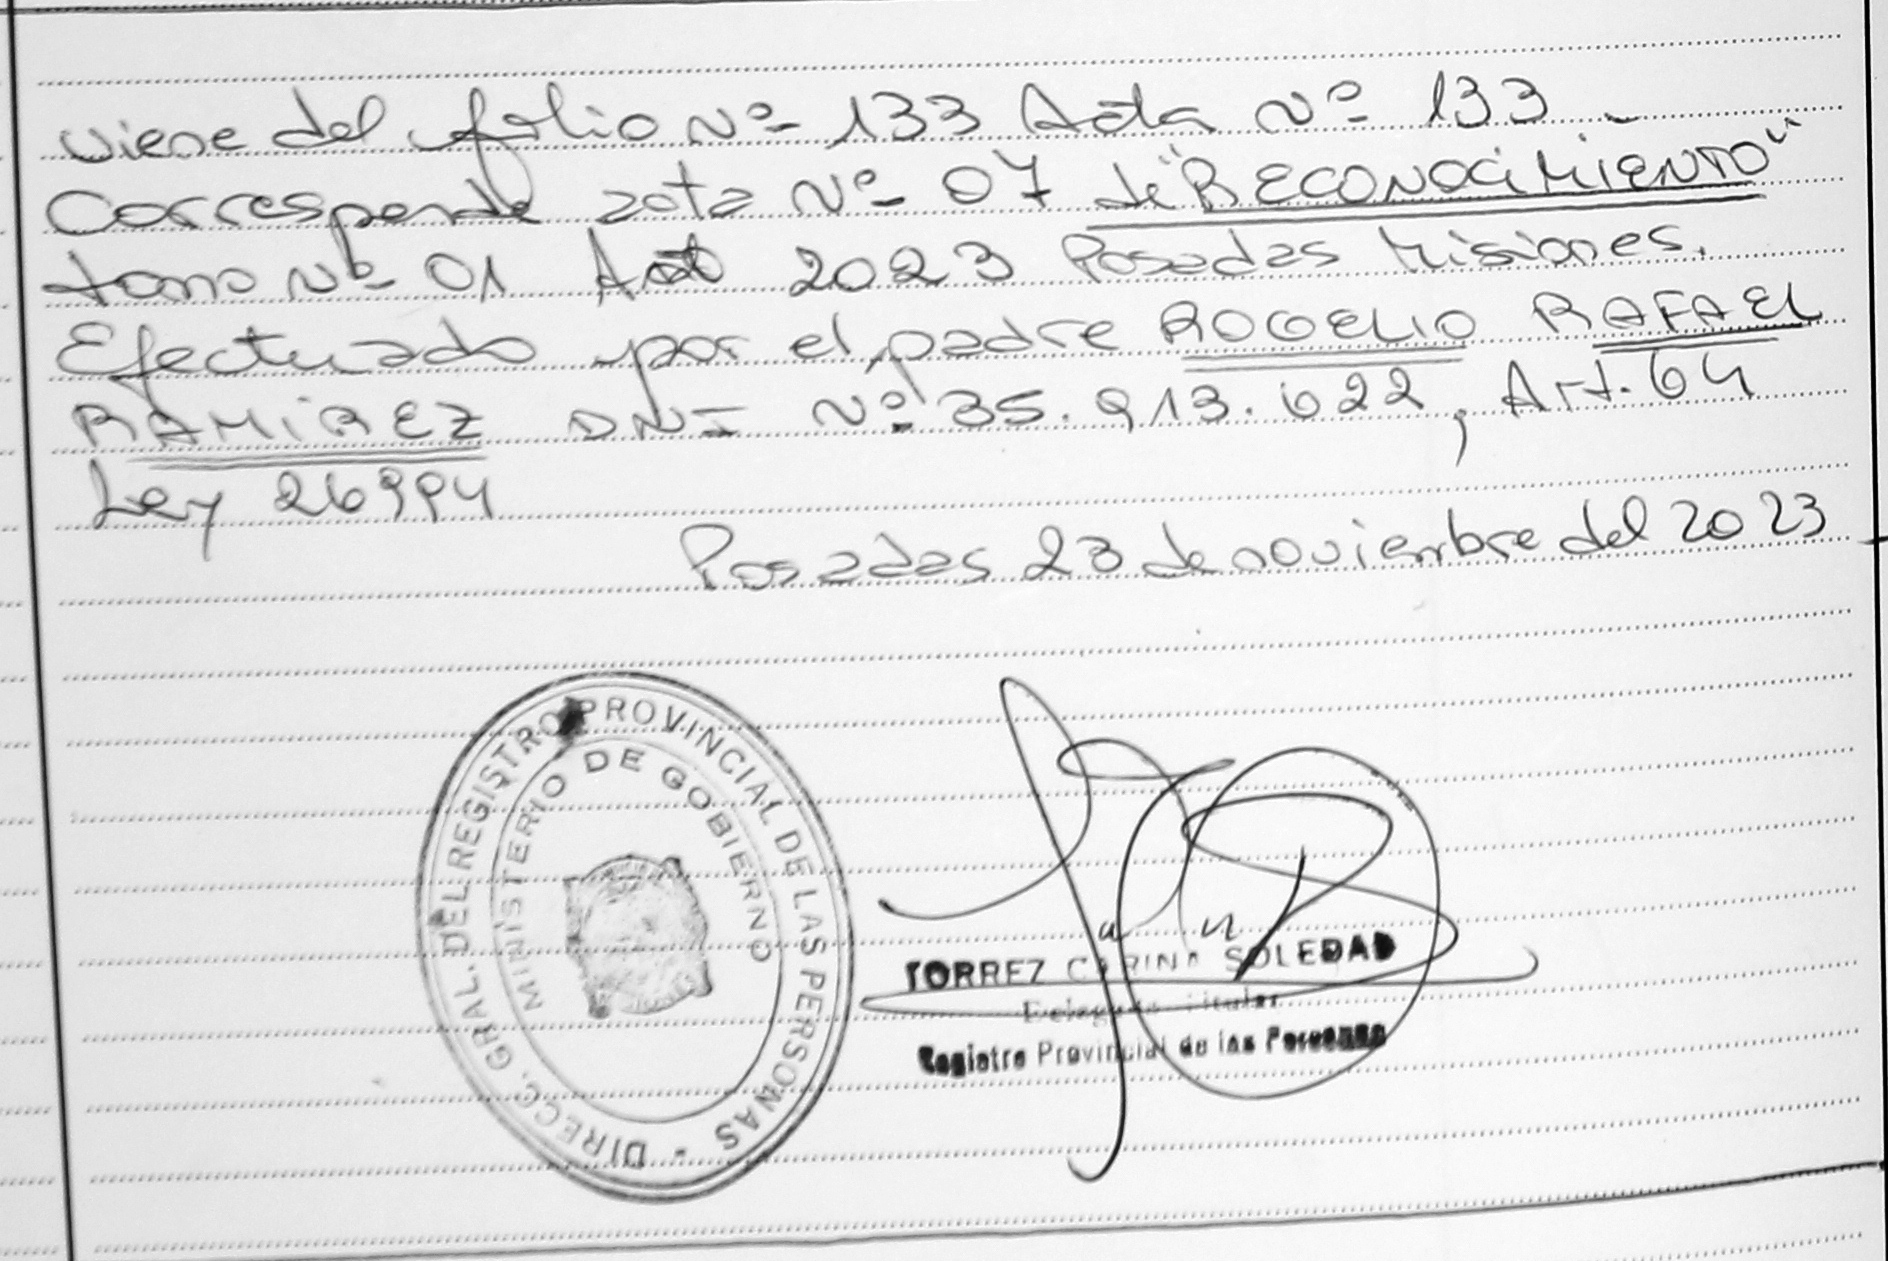 viene del folio Nº 133 Acta Nº 133 -
Corresponde acta Nº 07 de "RECONOCIMIENTO"
tomo Nº 01 2023 Posadas Misiones.
Efectuado por el padre ROGELIO RAFAEL
RAMIREZ DNI Nº 35.913.622, Art. 64
Ley 26994
Posadas 23 de noviembre del 2023
DIRECC. GRAL. DEL REGISTRO PROVINCIAL DE LAS PERSONAS -
MINISTERIO DE GOBIERNO
TORREZ CARINA SOLEDAD
Delegada Titular
Registro Provincial de las Personas